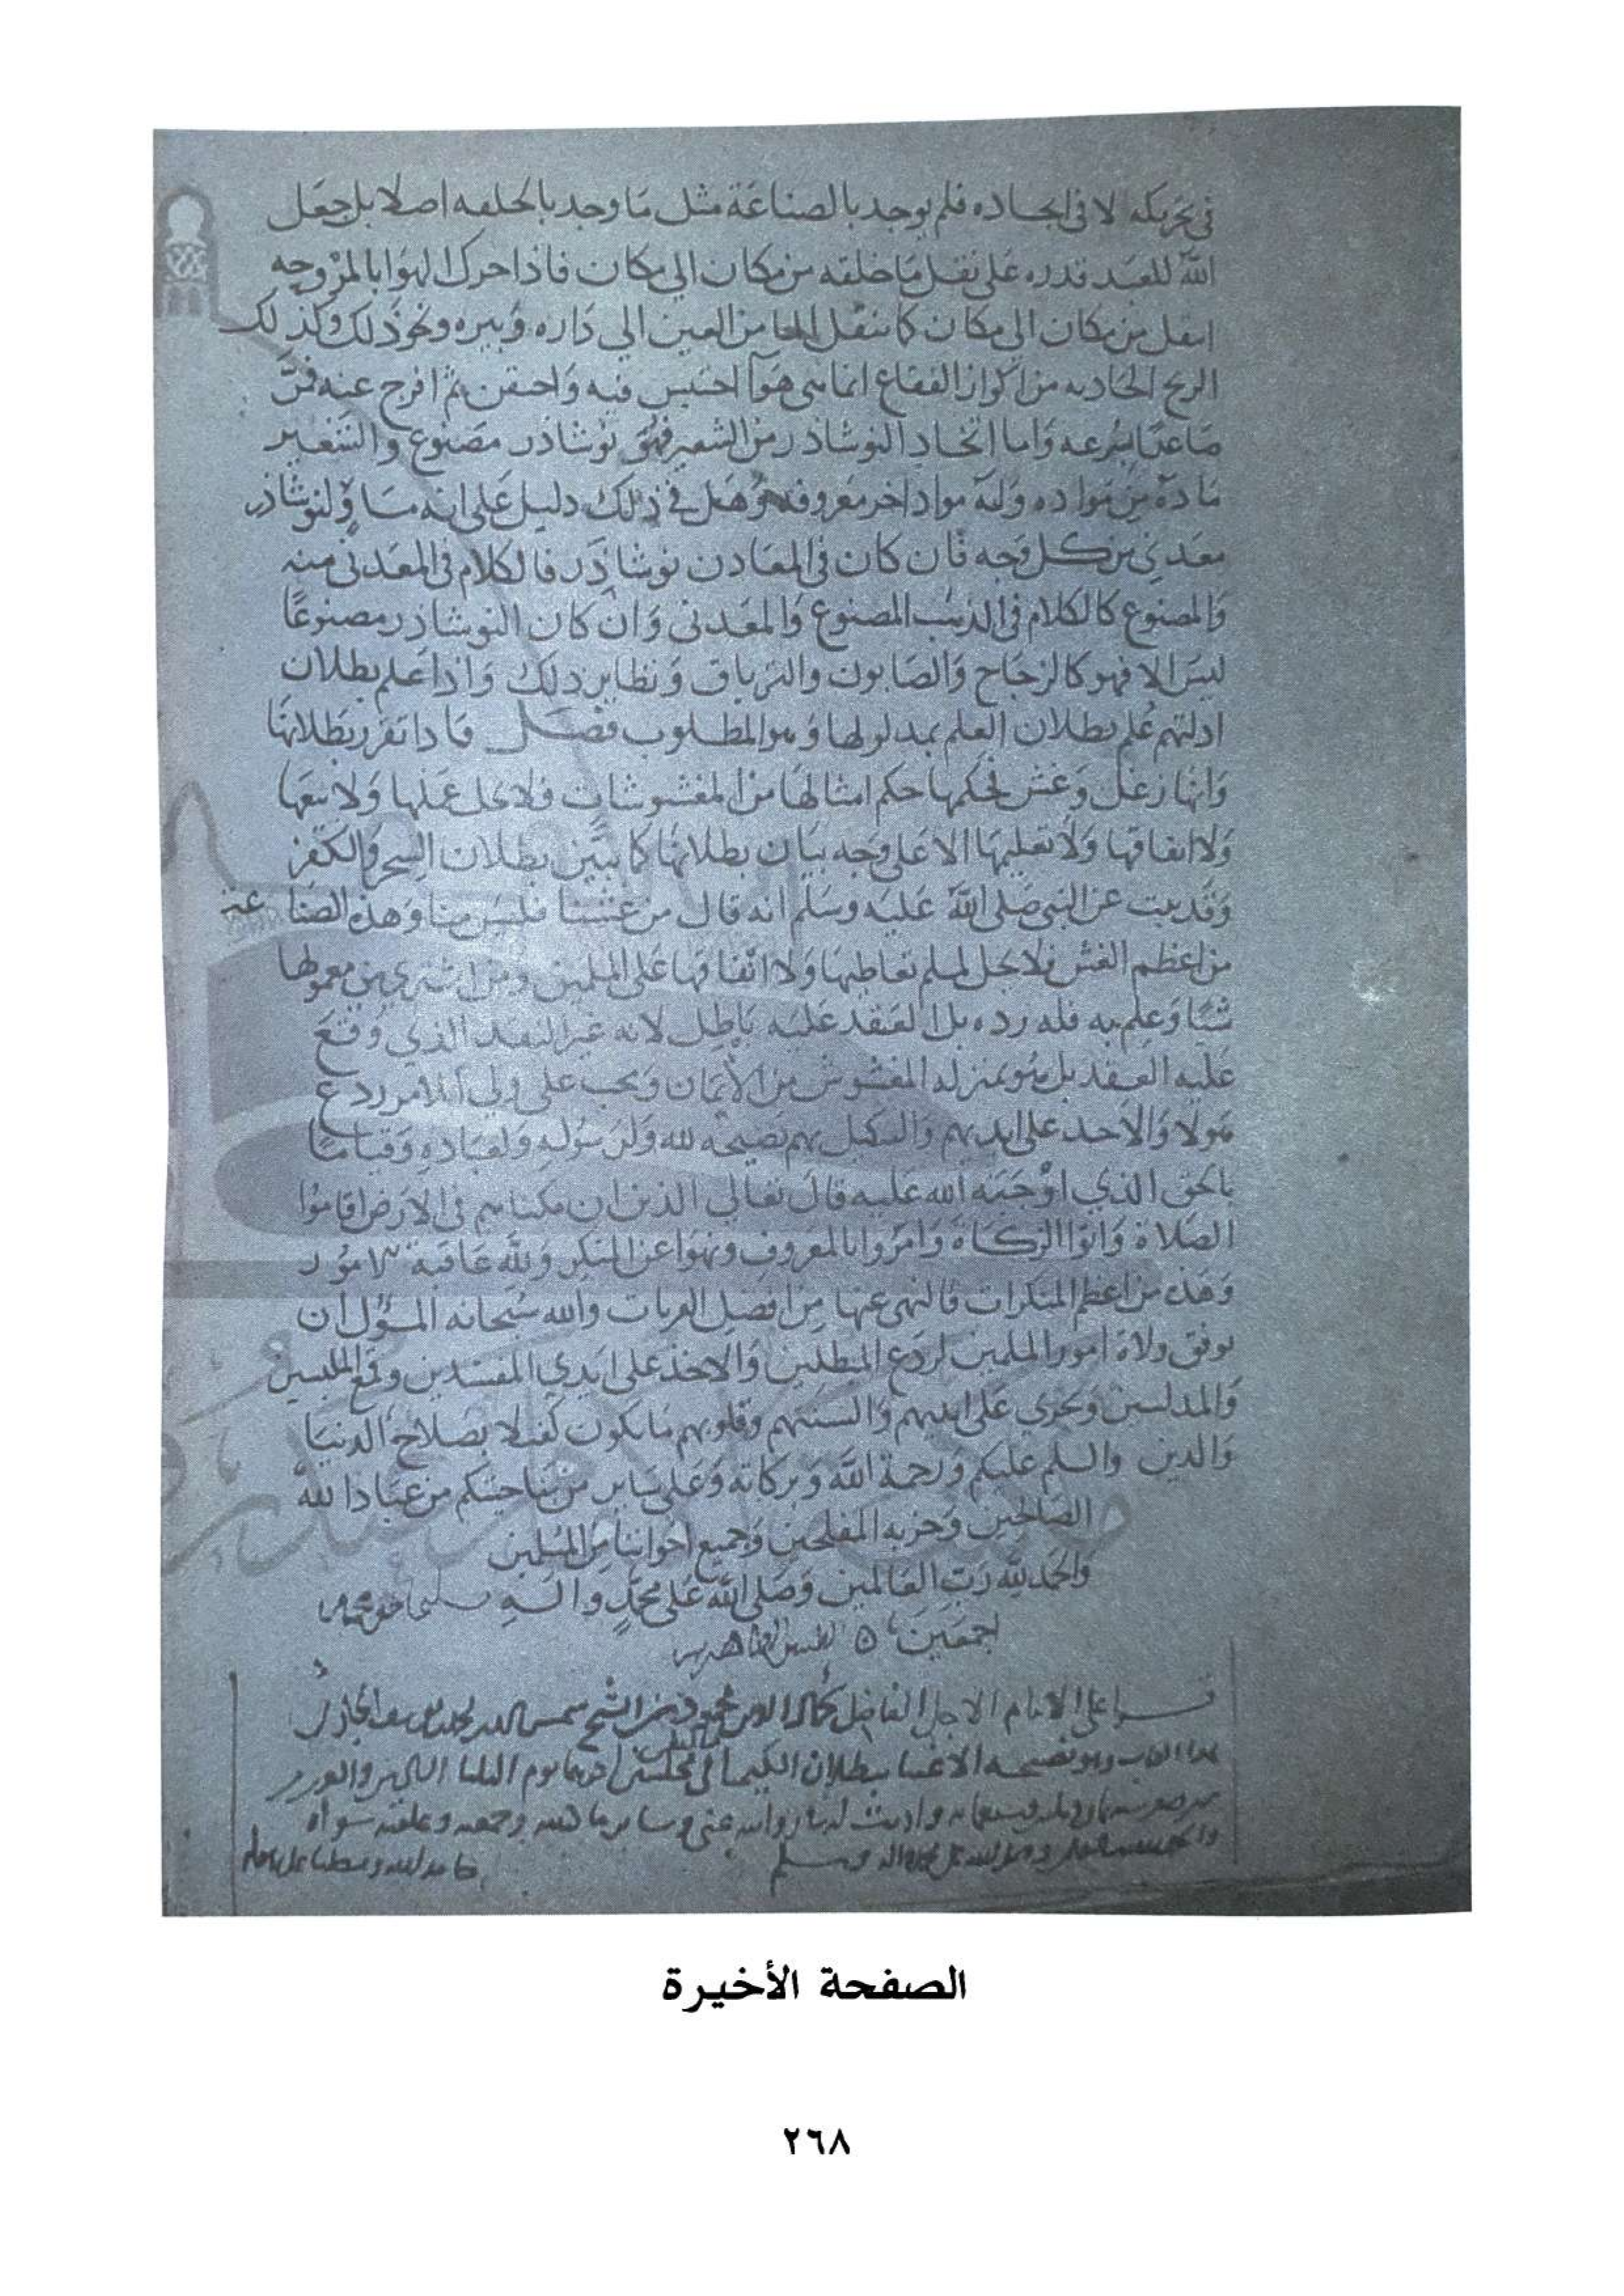 في تحريكه لا في ايجاده فلم يوجد بالصناعة مثل ما وجد بالخلقه اصلا بل جعل
الله للعبد قدره على نقل ما خلقه من مكان الي مكان فاذا حرك الهوا بالمروحه
انتقل من مكان الي مكان كما ينقل الما من العين الي داره وبيره ونحو ذلك وكذلك
الريح الحادثه من اكواز الفقاع انما هي هوآ احتبس فيه واحتقن ثم افرج عنه فمر
صاعدا بسرعه واما اتخاد النوشاذر من الشعير فهو نوشاذر مصنوع والشعير
مادة من مواده وله مواد اخر معروفه وهل في ذلك دليل على انه مساو لنوشاذر
معدني من كل وجه فان كان في المعادن نوشاذر فالكلام في المعدني منه
والمصنوع كالكلام في الذهب المصنوع والمعدني وان كان النوشاذر مصنوعًا
ليس الا فهو كالزجاج والصابون والترياق ونظاير ذلك واذا علم بطلان
ادلتهم علم بطلان العلم بمدلولها وهو المطلوب فصل فاذا تقرر بطلانها
وانها زغل وغش فحكمها حكم امثالها من المغشوشات فلا يحل عملها ولا بيعها
ولا انفاقها ولا تعليمها الا على وجه بيان بطلانها كما يبين بطلان السحر والكفر
وقد ثبت عن النبي صلى الله عليه وسلم انه قال من غشنا فليس منا وهذه الصناعة
من اعظم الغش فلا يحل لمسلم تعاطيها ولا انفاقها على المسلمين ومن اشتري من معمولها
شيئا وعلم به فله رده بل العقد عليه باطل لانه غير النقد الذي وقع
عليه العقد بل هو بمنزله المغشوش من الأثمان ويجب على ولي الامر ردع
هولا والاخذ على ايديهم والتنكيل بهم نصيحه لله ولرسوله ولعباده وقياما
بالحق الذي اوجبه الله عليه قال تعالي الذين ان مكناهم في الارض اقاموا
الصلاة واتوا الزكاة وامروا بالمعروف ونهوا عن المنكر ولله عاقبة الامور
وهذه من اعظم المنكرات فالنهي عنها من افضل القربات والله سبحانه المسؤل ان
يوفق ولاة امور المسلمين لردع المبطلين والاخذ على ايدي المفسدين وقمع الملبسين
والمدلسين ويجري على ايديهم والسنتهم وقلوبهم ما يكون كفيلا بصلاح الدنيا
والدين والسلم عليكم ورحمة الله وبركاته وعلى ساير من بناحيتكم من عباد الله
الصالحين وحزبه المفلحين وجميع اخواننا من المسلمين
والحمد لله رب العالمين وصلى الله على محمد واله
اجمعين
على الامام الاجل الفاضل كمال الدين الشيخ شمس الدين
بطلان الكيميا في مجلسين اخرهما يوم الثلثا
الصفحة الأخيرة
٢٦٨